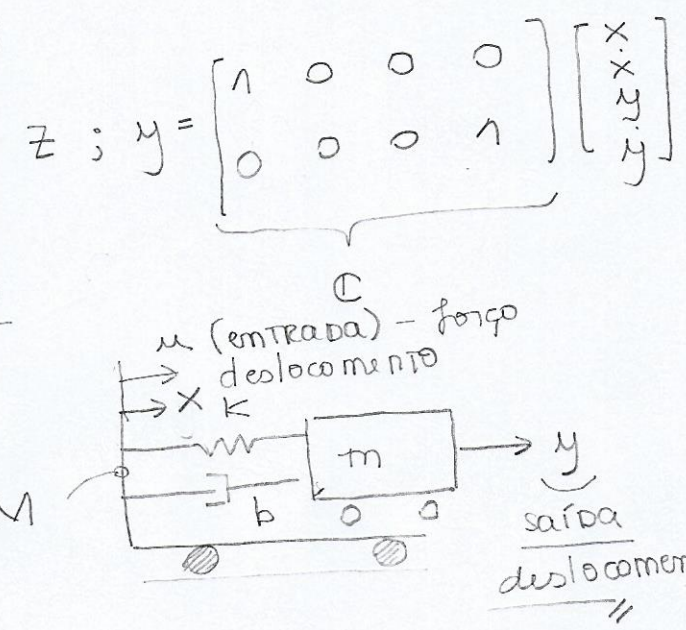 z ; y = [1 0 0 0
0 0 0 1] [x
ẋ
y
ẏ]
C
u (ENTRADA) - força
deslocamento
x K
m
y
M
b
saída
deslocamen